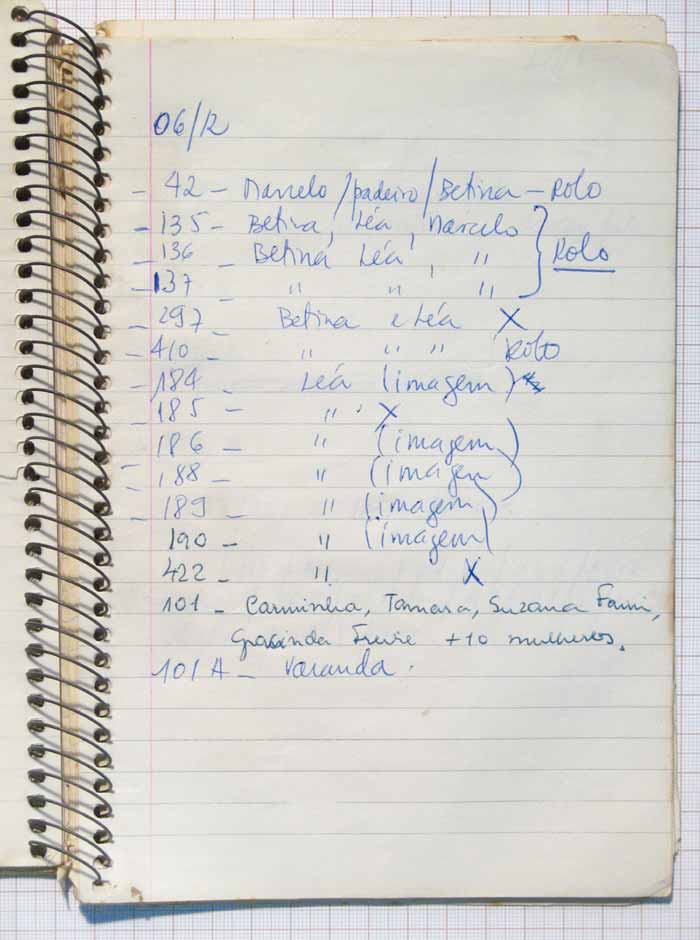 06/12
- 42 - Marcelo /padeiro/ Betina - Rolo
- 135 - Betina, Léa, Marcelo
- 136 - Betina Léa, " Rolo
- 137 - " " "
- 297 - Betina e Léa X
- 410 - " " " Rolo
- 184 - Léa (imagem)
- 185 - " X
186 - " (imagem)
- 188 - " (imagem)
- 189 - " (imagem)
190 - " (imagem)
422 - " X
101 - Carminha, Tamara, Suzana Faini,
Gracinda Freire + 10 mulheres.
101A - Varanda.